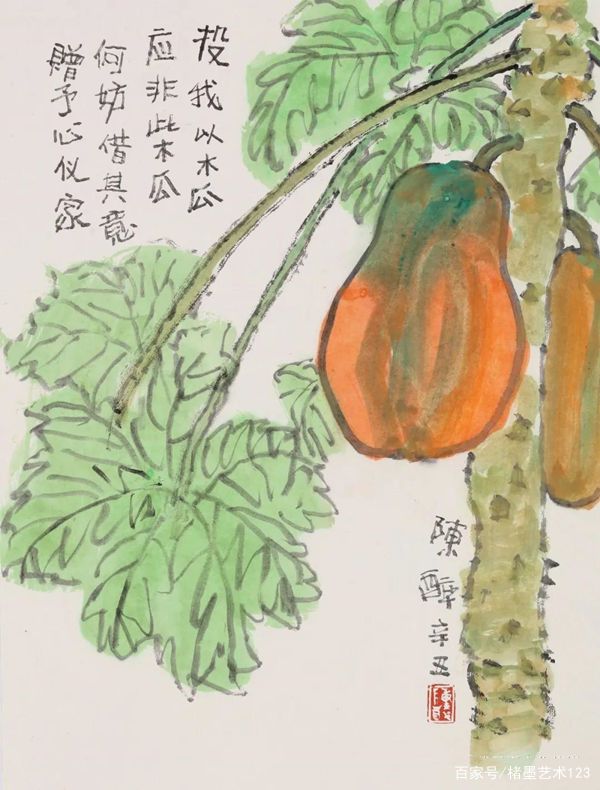 投我以木瓜
应非此木瓜
何妨借其意
赠予心仪家
陳醉辛丑
百家号/楮墨艺术123